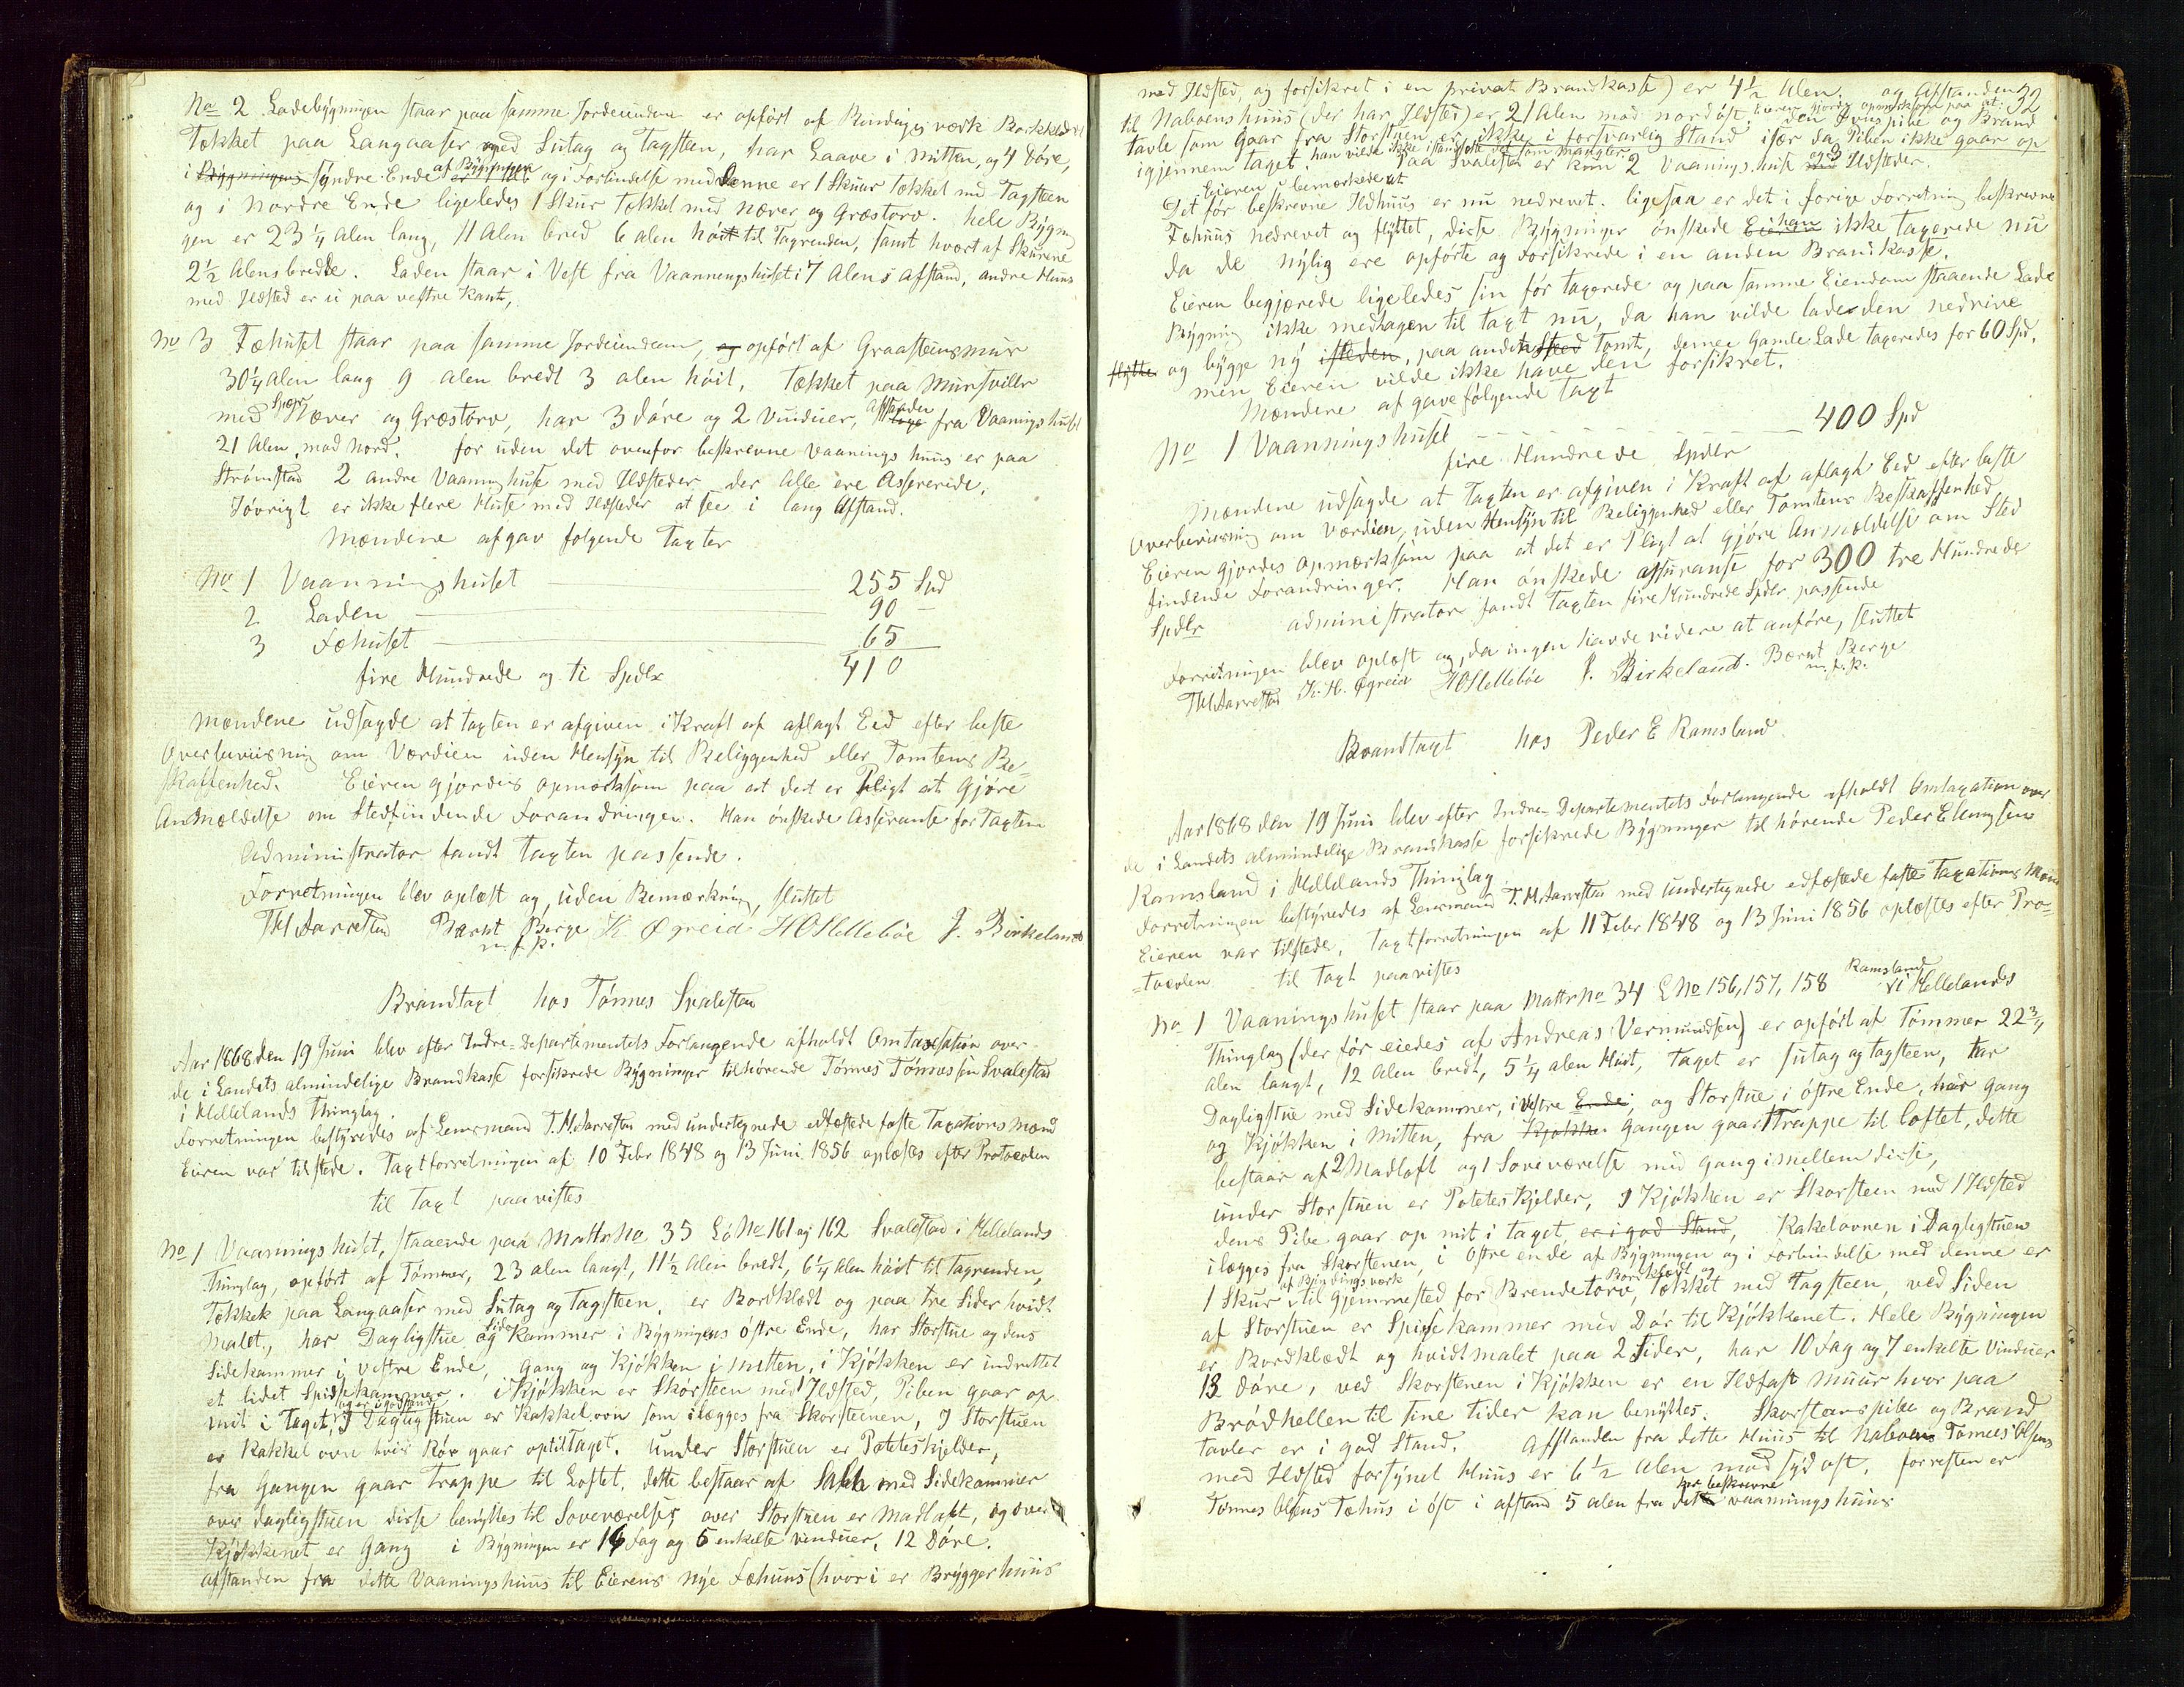 No 2 Ladebygningen staar paa samme Jordeiendom er opført af Bindingsværk Bordklædt
Tækket paa Langaaser med Sutag og Tagsteen, har Laave i mitten, og 4 Døre,
i Bygningens søndre Ende af Bygningen og i Forbindelse med denne er 1 Skuur tækket med Tagsteen
og i Nordre Ende ligeledes 1 Skur tækket med Næver og Græstorv. hele Bygnin
gen er 23 1/4 Alen lang, 11 Alen bred 6 alen høit til Tagrenden, samt hvert af Skurene
2 1/2 Alens bredde. Laden staar i Vest fra Vaanningshuset i 7 Alens Afstand, andre Huus
med Ildsted er ei paa vestre Kant,
No 3 Fæhuset staar paa samme Jordeiendom, og opført af Graasteensmuur
30 1/4 alen lang 9 alen bredt 3 alen høit, tækket paa Muursviller
med Spær Næver og Græstorv, har 3 døre og 2 Vinduer, Afstanden fra Vaanings huset
21 Alen mod Nord. for uden det ovenfor beskrevne Vaanings huus er paa
Strømstad 2 andre Vaaninghuse med Ildsteder der Alle ere Asserererede,
Iøvrigt er ikke flere Huse med Ildsteder at see i lang Afstand.
Mændene afgav følgende Taxter
No 1 Vaanningshuset 255 Spd
2 Laden 90 –
3 Fæhuset 65
fire Hundrede og ti Spdlr 410
Mændene udsagde at taxten er afgiven i Kraft af aflagt Eed efter beste
Overbeviisning om Værdien uden Hensyn til Beliggenhed eller Tomtens Be-
skaffenhed. Eieren gjordes opmærksom paa at det er Pligt at gjøre
Anmældelse om Stedfindende Forandringer. Han ønskede Asseranse for Taxten
Administrator fandt Taxten passende.
Forretningen blev oplæst og, uden Bemærkning, sluttet
T M Aarrestad Bærnt Berge K. Øgreid H O Hellebøe J. Birkeland
m. f. p.
Brandtaxt hos Tønnes Svalestad
Aar 1868 den 19 Juni blev efter Indre-Departementets Forlangende afholdt Omtaxation over
de i Landets almindelige Brandkasse forsikrede Bygninger tilhørende Tønnes Tønnessen Svalestad
i Hellelands Thinglag.
Forretningen bestyredes af Lensmand T. M. Aarrestad med undertegnede edfæstede faste Taxations Mænd
Eieren var tilstede. Taxtforretningen af 10 Febr 1848 og 13 Juni 1856 oplæstes efter Protocolen
til Taxt paavistes
No 1 Vaaningshuset, staaende paa Mattr No 35 Lø No 161 og 162 Svalestad i Hellelands
Thinglag, opført af Tømmer, 23 alen langt, 11 1/2 Alen bredt, 6 1/4 Alen høit til Tagrenden,
Tækket paa Langaaser med Sutag og Tagsteen, er Bordklædt og paa tre Sider hvidt
Malet, har Dagligstue og Side Kammer i Bygningens østre Ende, har Storstue og dens
Sidekammer i vestre Ende, Gang og Kjøkken i mitten, i Kjøkken er indrettet
et lidet Spisekammer. i Kjøkken er Skorsteen med 1 Ildsted, Piben gaar op
mit i Taget, og er i god stand I Dagligstuen er Kakkelovn som ilægges fra Skorsteenen, I Storstuen
er Kakkel ovn hvis Rør gaar op til Taget. under Storstuen er Poteteskjelder,
fra Gangen gaar Trappe til Loftet, dette bestaar af Sahl med Sidekammer
over dagligstuen disse benyttes til Soveværelser, over Storstuen er Madloft, og over
Kjøkkenet er Gang i Bygningen er 16 Fag og 5 enkelte Vinduer, 12 Døre.
afstanden fra dette Vaaningshuus til Eierens nye Fæhuus (hvori er Bryggerhuus
32
med Ildsted, og forsikret i en privat Brandkasse) er 4 1/2 Alen. og Afstanden
til Naboens huus (der har Ildsted) er 21 Alen mod nordøst. Eieren gjordes opmærksom paa at den Ovnspibe og Brand
tavle som gaar fra Storstuen er ikke i forsvarlig Stand især da Piben ikke gaar op
igjennem taget. han vilde ikke istandsætte det som mangler. Paa Svalestad er kun 2 Vaanings huse og 3 Ildsteder.
Eieren bemærkede at
Det før beskrevne Ildhuus er nu nedrevet. ligesaa er det i forige Forretning beskrevne
Fæhuus nedrevet og flyttet, disse Bygninger ønskede Eieren han ikke Taxerede nu
da de nylig ere opførte og Forsikrede i en anden Brandkasse.
Eieren begjærede ligeledes sin før taxerede og paa samme Eiendom staaende Lade
Bygning ikke medtagen til taxt nu, da han vilde lade den nedrive
flytte og bygge ny isteden, paa anden Sted Tomt, denne Gamle Lade taxeredes for 60 Spd.
men Eieren vilde ikke have den forsikret.
Mændene af gave følgende Taxt
No 1 Vaanningshuset 400 Spd
fire Hundrede Spdlr
Mændene udsagde at Taxten er afgiven i Kraft af aflagt Eed efter beste
Overbeviisning om Værdien, uden Hensyn til Beliggenhed eller Tomtens Beskaffenhed
Eieren gjordes opmærksom paa at det er Pligt at gjøre Anmældelse om Sted
findende Forandringer. Han ønskede assuranse for 300 tre Hundrede
Spdlr administrator fandt Taxten fire Hundrede Spdlr. passende
Forretningen blev oplæst og, da ingen havde videre at anføre, sluttet
T M Aarrestad K. H. Øgreid H O Hellebøe J. Birkeland. Bærnt Berge
m. f. p.
Brandtaxt hos Peder E Ramsland.
Aar 1868 den 19 Juni blev efter Indre-Departementets Forlangende afholdt Omtaxation over
de i Landets almindelige Brandkasse forsikrede Bygninger til hørende Peder Elengsen
Ramsland i Hellelands Thinglag.
Forretningen bestyredes af Lensmand T. M. Aarrestad med undertegnede edfæstede faste Taxations Mænd
Eieren var tilstede. Taxtforretningen af 11 Febr 1848 og 13 Juni 1856 oplæstes efter Pro-
-tocolen til Taxt paavistes
No 1 Vaaningshuset staar paa Mattr No 34 L No 156, 157, 158 Ramsland i Hellelands
Thinglag (der før eiedes af Andreas Vermundsen) er opført af Tømmer 22 3/4
alen langt, 12 Alen bredt, 5 1/4 alen Høit, Taget er sutag og tagsteen, har
Dagligstue med Sidekammer, i Vestre Ende, og Storstue i østre Ende, har Gang
og Kjøkken i mitten, fra Kjøkken Gangen gaar 1 Trappe til Loftet, dette
bestaar af 2 Madloft og 1 Soveværelse med Gang imellem disse,
under Storstuen er Potetes Kjelder, I Kjøkken er Skorsteen med 1 Ildsted
dens Pibe gaar op mit i taget, er i god Stand, Kakelovnen i Dagligstuen
ilægges fra Skorstenen, i Østre ende af Bygningen og i Forbindelse med denne er
1 Skur af Bindingsværk til Gjemmested for Brendetorv, Bordklædt og tækket med Tagsteen, ved Siden
af Storstuen er Spisekammer med Dør til Kjøkkenet. Hele Bygningen
er Bordklædt og hvidtmalet paa 2 Sider, har 10 Fag og 7 enkelte Vinduer
13 døre, ved Skorstenen i Kjøkken er en Ildfast Muur hvor paa
Brødhellen til sine tider kan benyttes. Skorsteenspibe og Brand
tavler er i god Stand. Afstanden fra dette Huus til Naboen Tønnes Olsens
med Ildsted forsynet Huus er 6 1/2 Alen mod sydost. forresten er
Tønnes Olsens Fæhus i øst i afstand 5 alen fra det her beskrevne vaannings huus